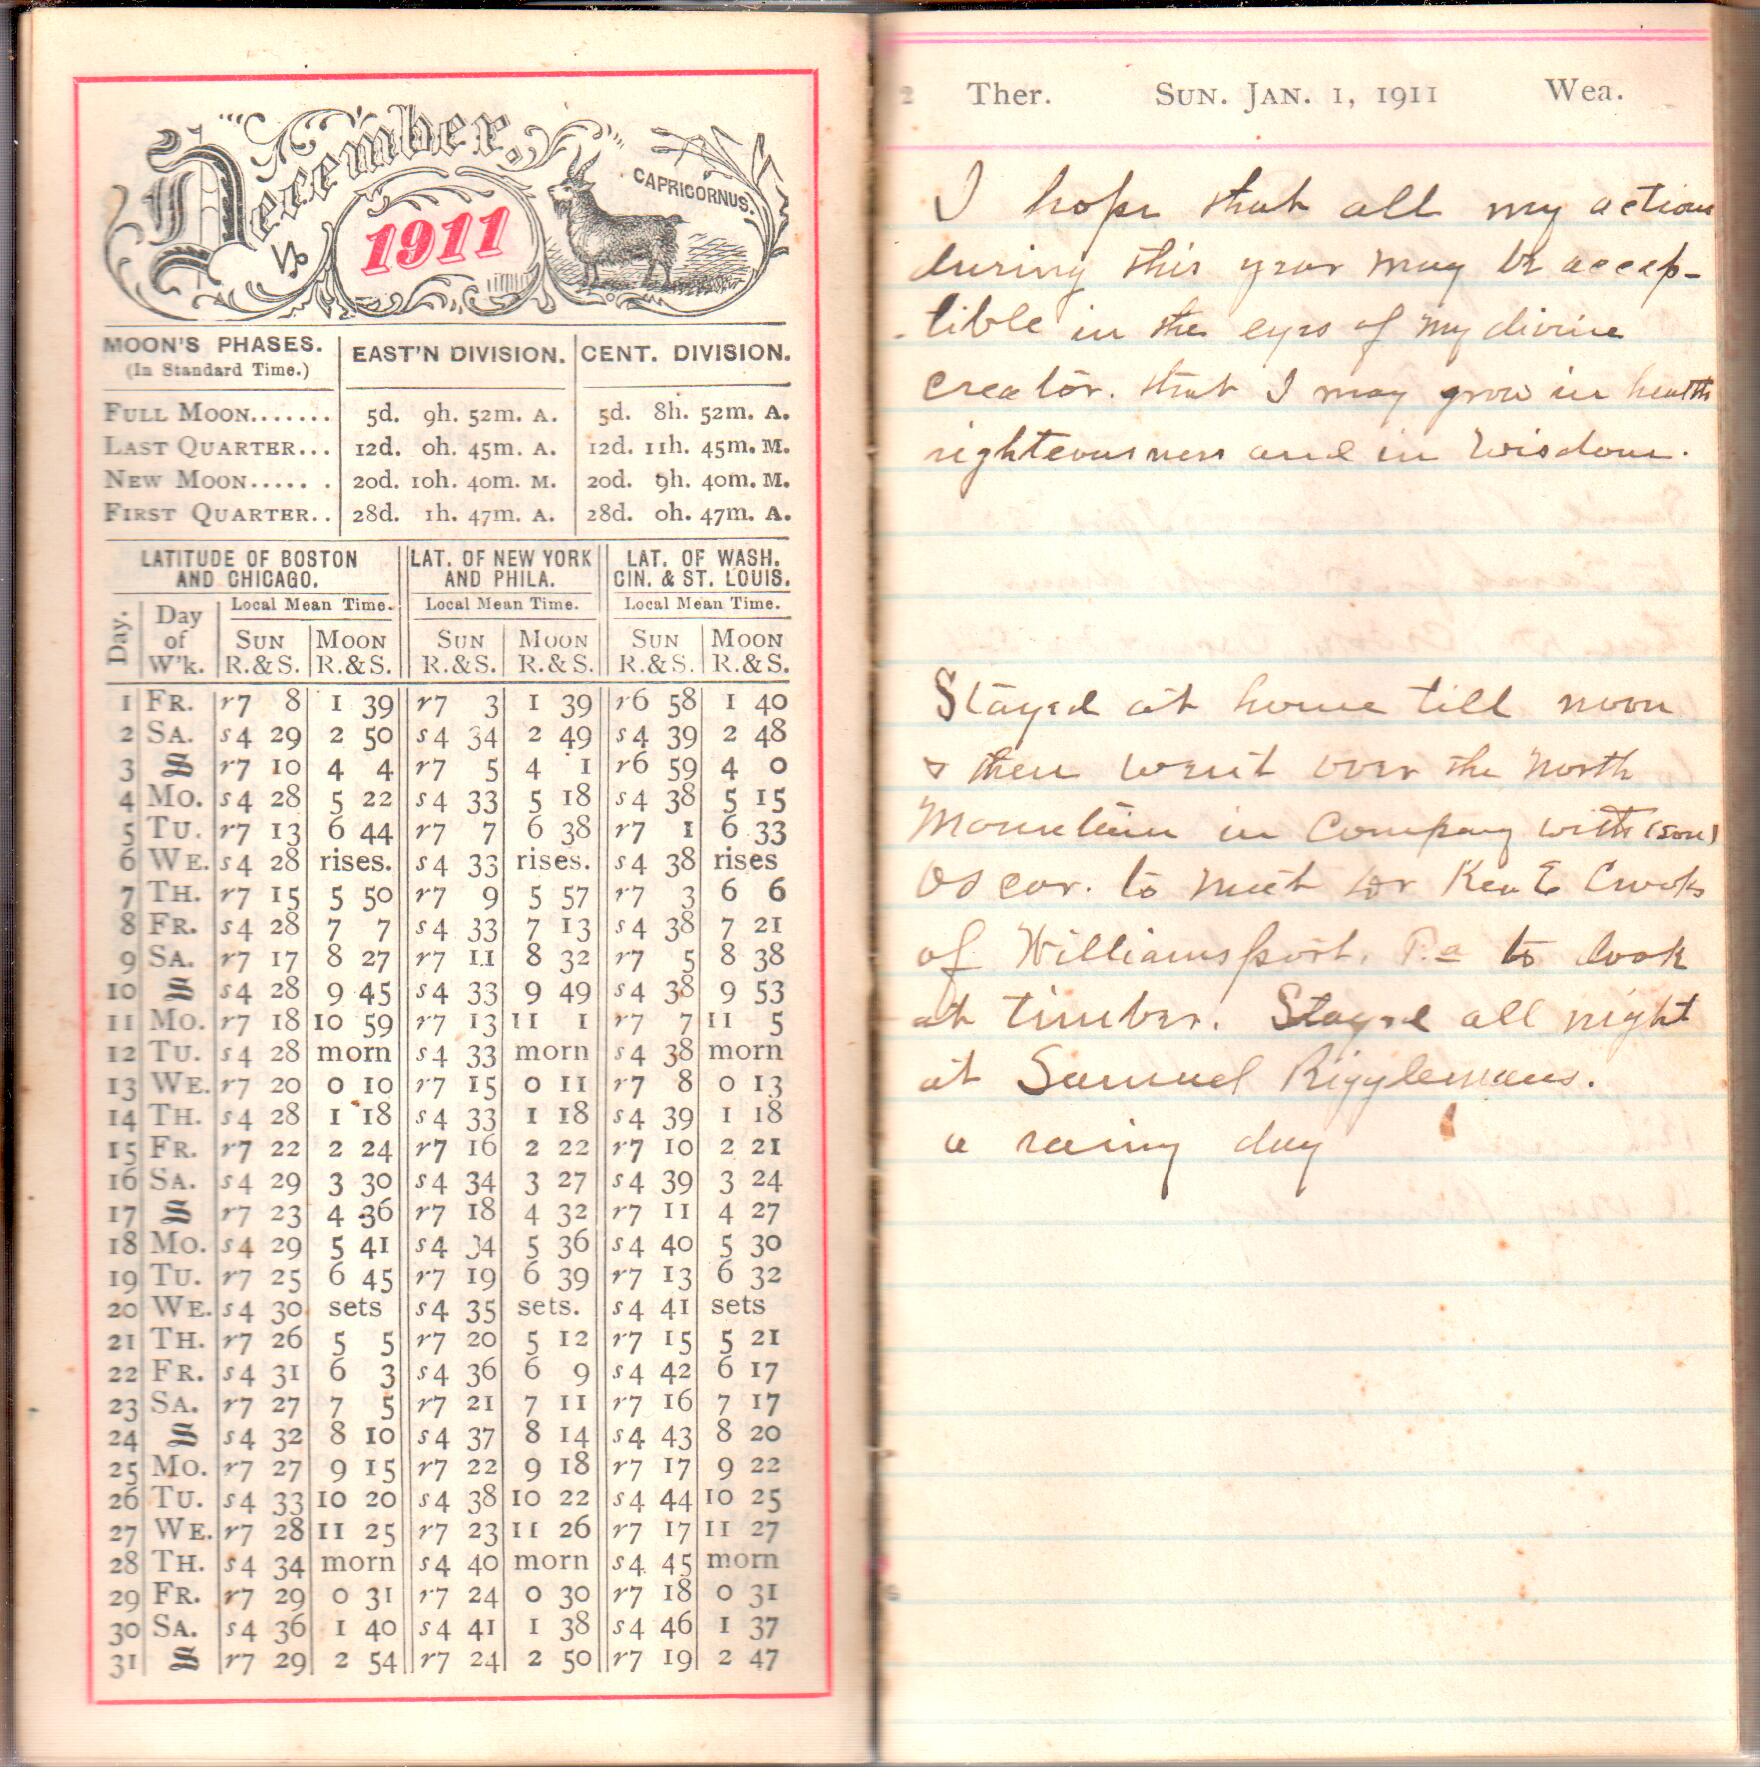 December.
1911
CAPRICORNUS.
MOON'S PHASES. EAST'N DIVISION. CENT. DIVISION.
(In Standard Time.)
FULL MOON....... 5d. 9h. 52m. A. 5d. 8h. 52m. A.
LAST QUARTER... 12d. 0h. 45m. A. 12d. 11h. 45m. M.
NEW MOON...... 20d. 10h. 40m. M. 20d. 9h. 40m. M.
FIRST QUARTER.. 28d. 1h. 47m. A. 28d. 0h. 47m. A.
LATITUDE OF BOSTON LAT. OF NEW YORK LAT. OF WASH.
AND CHICAGO. AND PHILA. CIN. & ST. LOUIS.
Local Mean Time. Local Mean Time. Local Mean Time.
Day. Day of W'k. SUN R.&S. MOON R.&S. SUN R.&S. MOON R.&S. SUN R.&S. MOON R.&S.
1 FR. r7 8 1 39 r7 3 1 39 r6 58 1 40
2 SA. s4 29 2 50 s4 34 2 49 s4 39 2 48
3 S r7 10 4 4 r7 5 4 1 r6 59 4 0
4 MO. s4 28 5 22 s4 33 5 18 s4 38 5 15
5 TU. r7 13 6 44 r7 7 6 38 r7 1 6 33
6 WE. s4 28 rises. s4 33 rises. s4 38 rises
7 TH. r7 15 5 50 r7 9 5 57 r7 3 6 6
8 FR. s4 28 7 7 s4 33 7 13 s4 38 7 21
9 SA. r7 17 8 27 r7 11 8 32 r7 5 8 38
10 S s4 28 9 45 s4 33 9 49 s4 38 9 53
11 MO. r7 18 10 59 r7 13 11 1 r7 7 11 5
12 TU. s4 28 morn s4 33 morn s4 38 morn
13 WE. r7 20 0 10 r7 15 0 11 r7 8 0 13
14 TH. s4 28 1 18 s4 33 1 18 s4 39 1 18
15 FR. r7 22 2 24 r7 16 2 22 r7 10 2 21
16 SA. s4 29 3 30 s4 34 3 27 s4 39 3 24
17 S r7 23 4 36 r7 18 4 32 r7 11 4 27
18 MO. s4 29 5 41 s4 34 5 36 s4 40 5 30
19 TU. r7 25 6 45 r7 19 6 39 r7 13 6 32
20 WE. s4 30 sets s4 35 sets. s4 41 sets
21 TH. r7 26 5 5 r7 20 5 12 r7 15 5 21
22 FR. s4 31 6 3 s4 36 6 9 s4 42 6 17
23 SA. r7 27 7 5 r7 21 7 11 r7 16 7 17
24 S s4 32 8 10 s4 37 8 14 s4 43 8 20
25 MO. r7 27 9 15 r7 22 9 18 r7 17 9 22
26 TU. s4 33 10 20 s4 38 10 22 s4 44 10 25
27 WE. r7 28 11 25 r7 23 11 26 r7 17 11 27
28 TH. s4 34 morn s4 40 morn s4 45 morn
29 FR. r7 29 0 31 r7 24 0 30 r7 18 0 31
30 SA. s4 36 1 40 s4 41 1 38 s4 46 1 37
31 S r7 29 2 54 r7 24 2 50 r7 19 2 47
Ther. SUN. JAN. 1, 1911 Wea.
I hope that all my actions
during this year may be accep-
-tible in the eyes of my divine
Creator. that I may grow in health
righteousness and in Wisdom.
Stayed at home till noon
& then went over the North
Mountain in Company with (son)
Oscar. to meet Crooks
of Williamsport. Pa to look
at timber. Stayed all night
at Samuel Rigglemans.
a rainy day